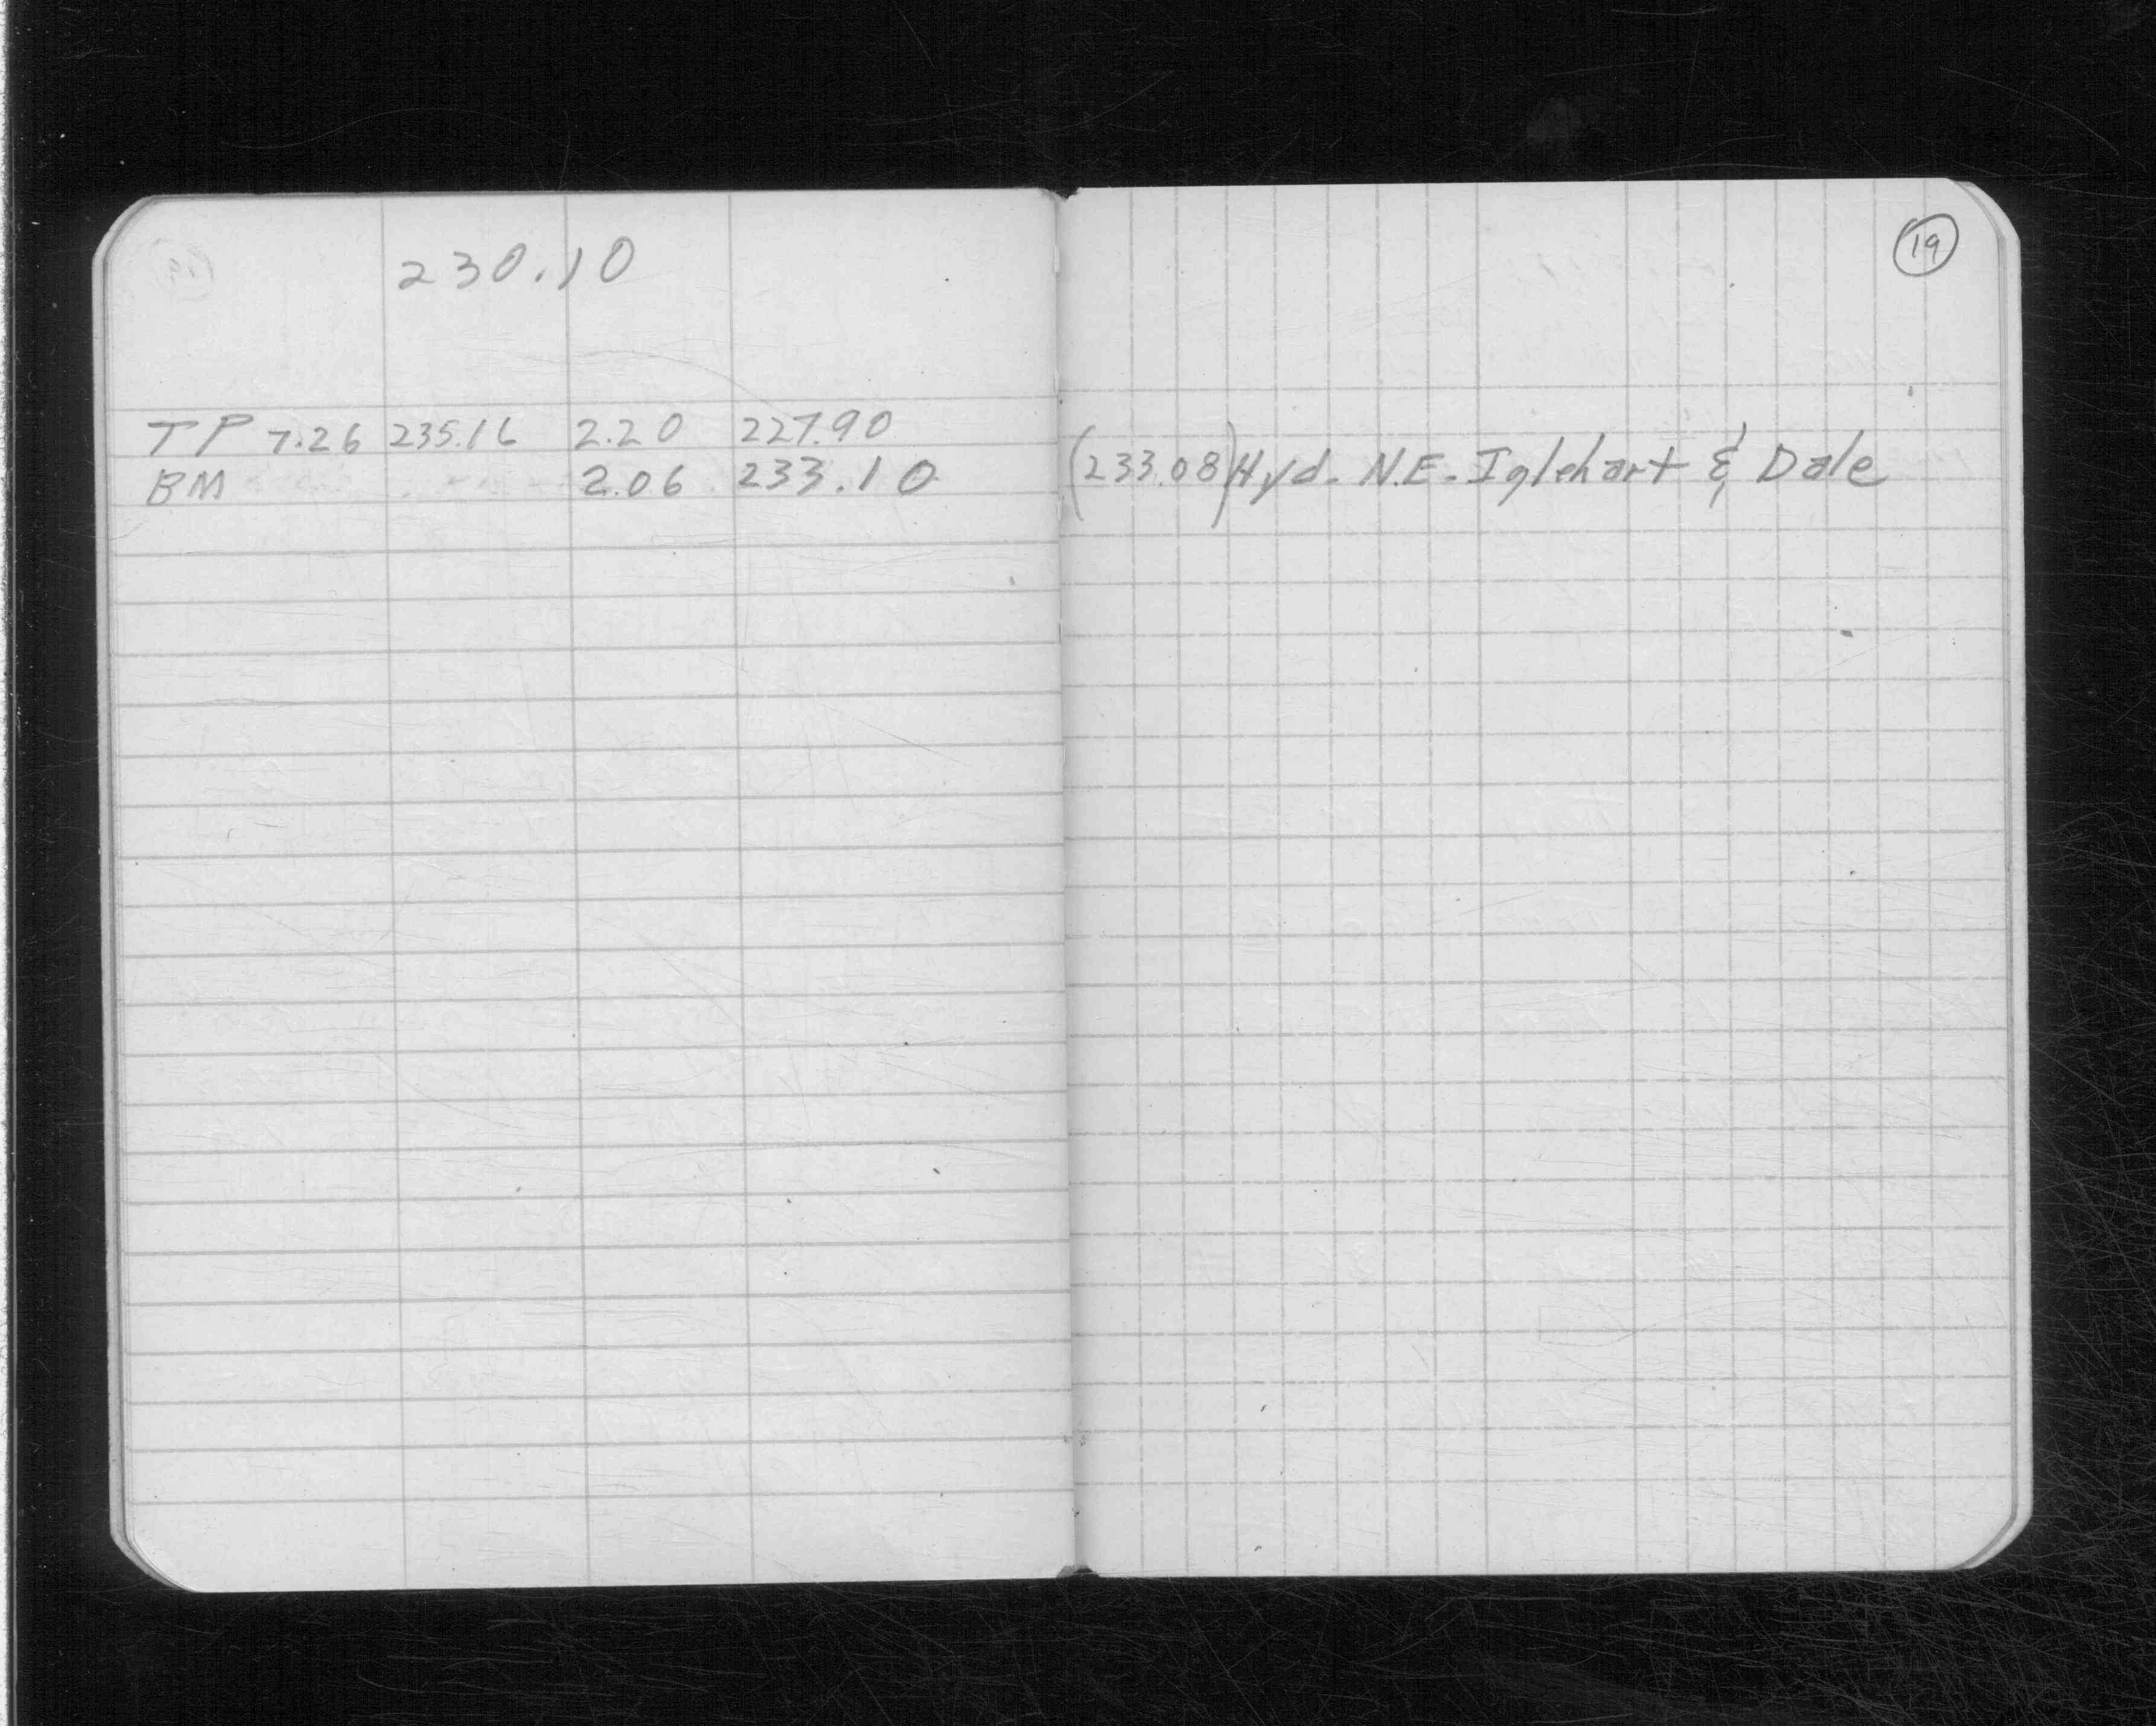 230.10
TP 7.26 235.16 2.20 227.90
BM 2.06 233.10
19
(233.08) Hyd. N.E. Iglehart & Dale